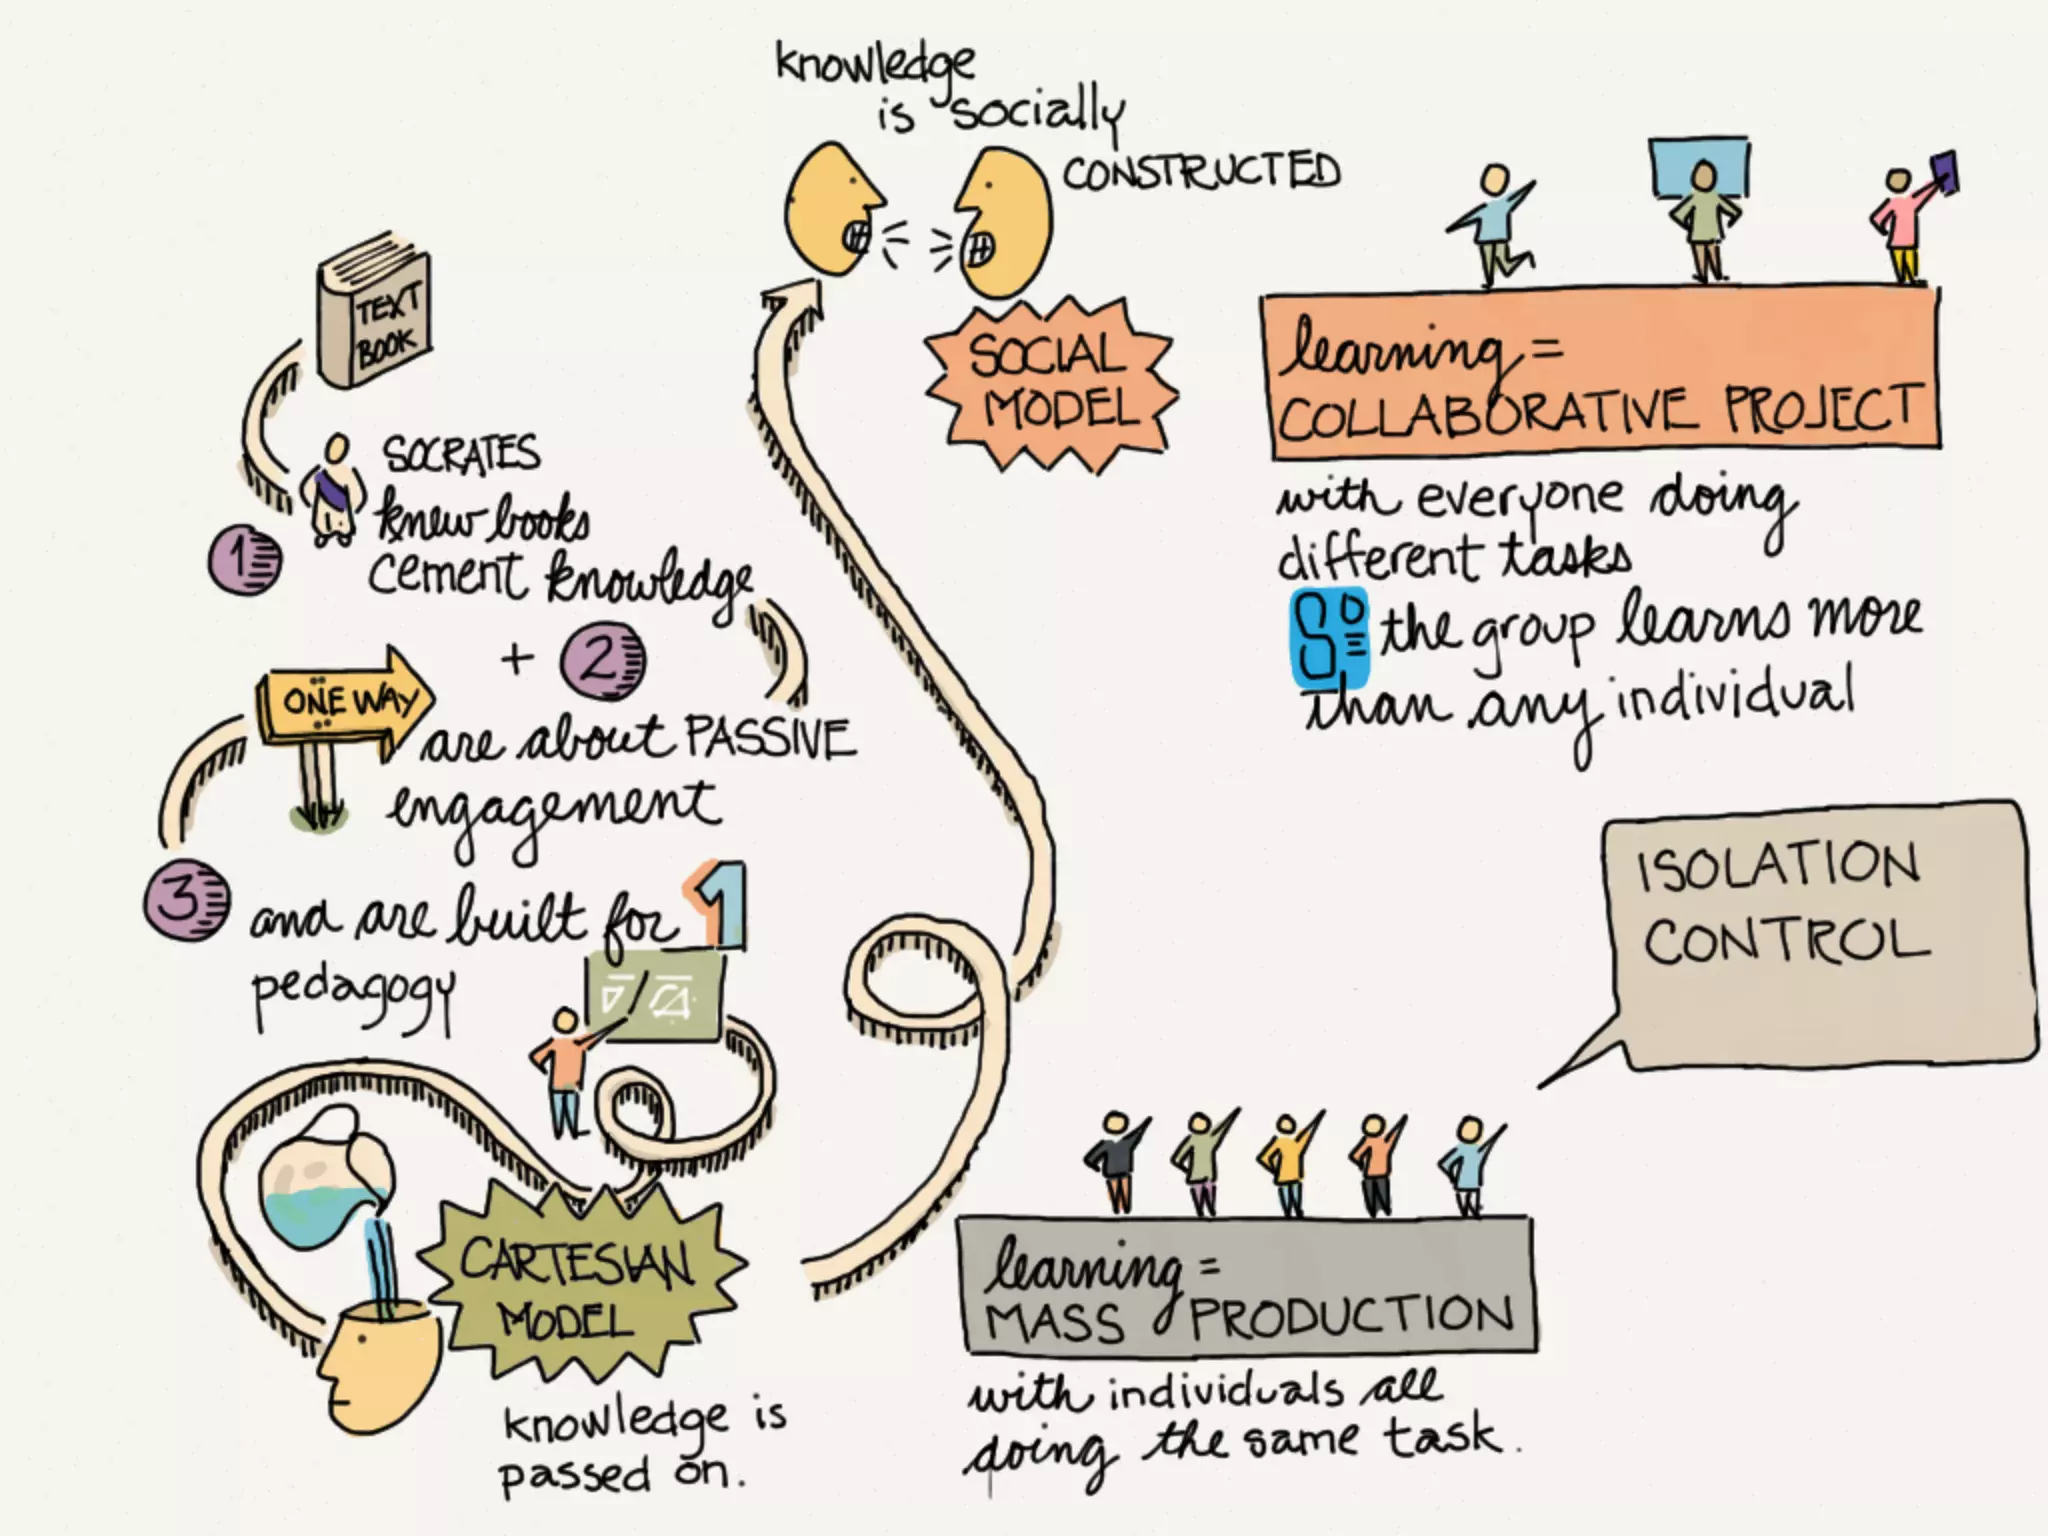 TEXT
BOOK
SOCRATES
1 knew books
cement knowledge
+ 2
ONE WAY
are about PASSIVE
engagement
3 and are built for 1
pedagogy
CARTESIAN
MODEL
knowledge is
passed on.
knowledge
is socially
CONSTRUCTED
SOCIAL
MODEL
learning =
COLLABORATIVE PROJECT
with everyone doing
different tasks
So the group learns more
than any individual
ISOLATION
CONTROL
learning =
MASS PRODUCTION
with individuals all
doing the same task.